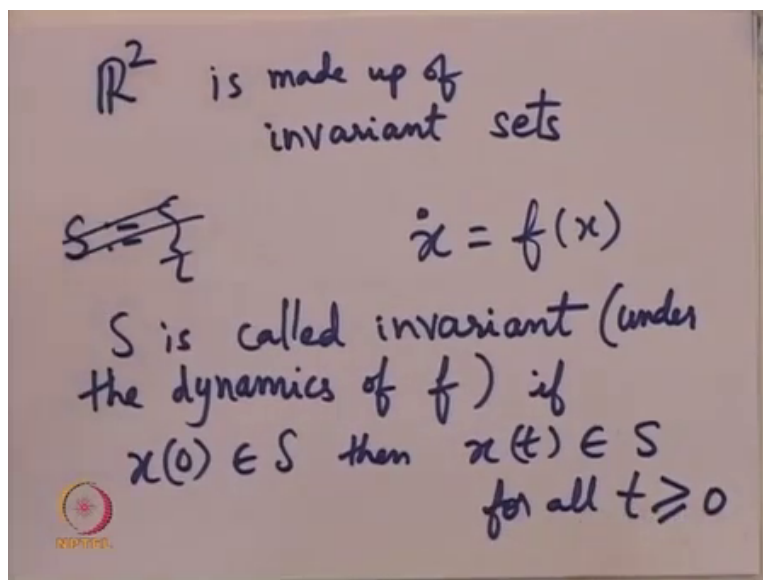 ℝ² is made up of
invariant sets
S := {
ẋ = f(x)
S is called invariant (under
the dynamics of f) if
x(0) ∈ S then x(t) ∈ S
for all t ⩾ 0
NPTEL